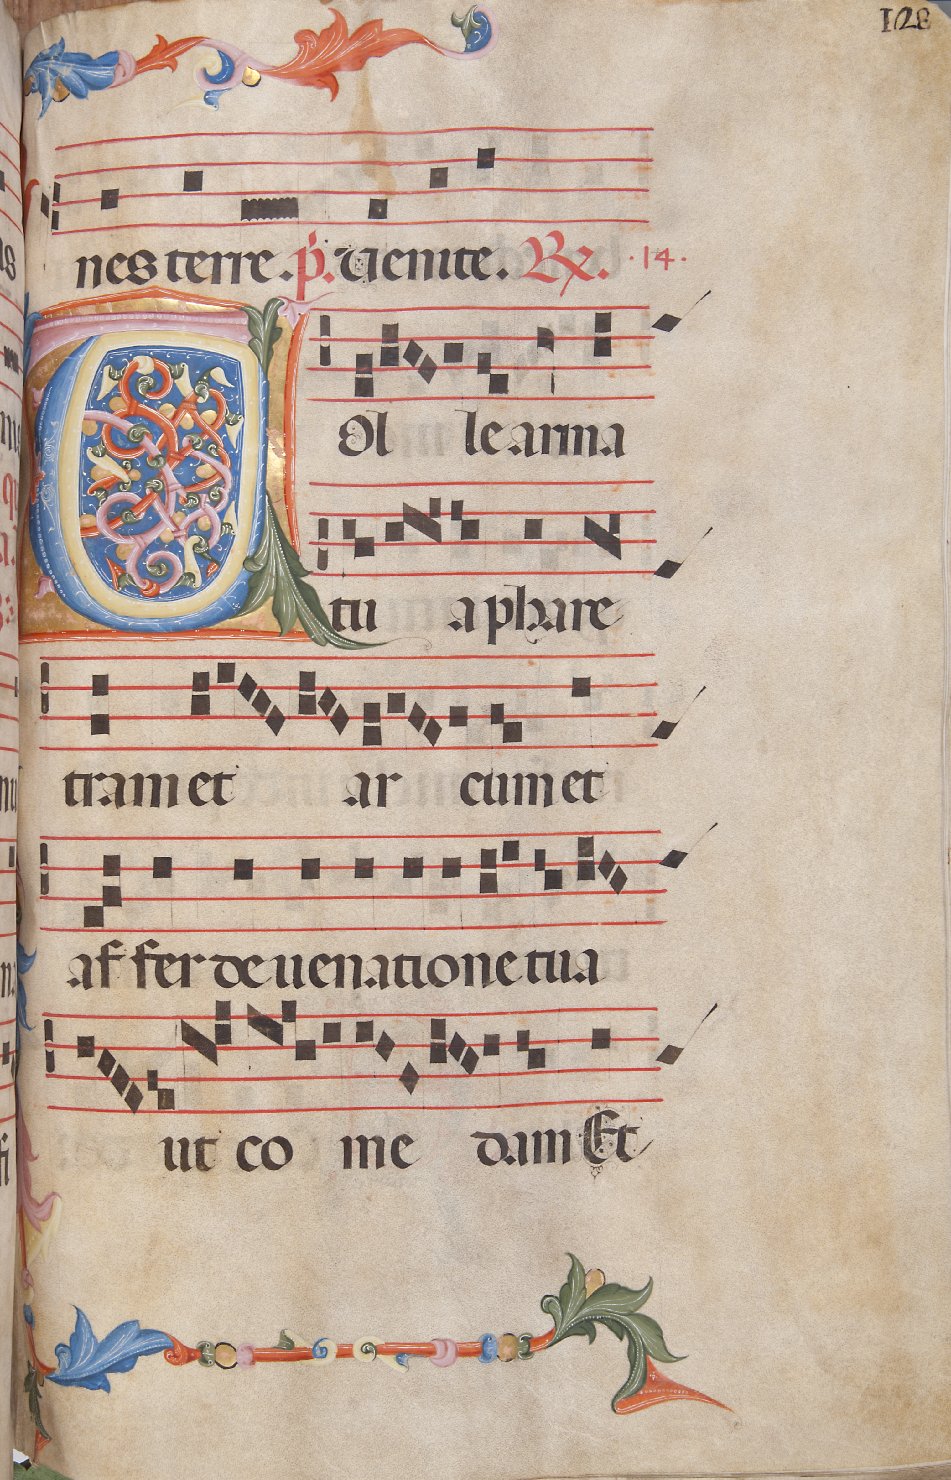 128
nes terre. p̄. Venite. R℟. ·14·
Tol le arma
tu a phare
tram et ar cum et
af fer de uenatione tua
ut co me dam Et